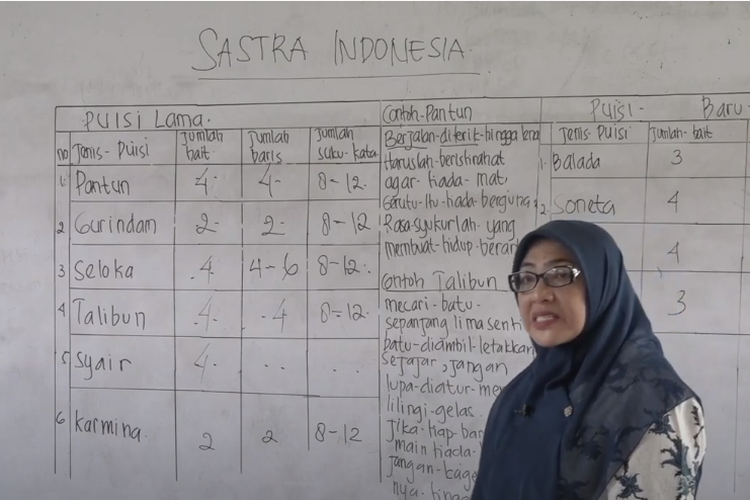 SASTRA INDONESIA
PUISI Lama.
no Jenis-Puisi Jumlah bait Jumlah baris Jumlah suku-kata
1. Pantun 4- 4- 8-12.
2 Gurindan 2- 2- 8-12
3 Seloka .4 4-6 8-12.
4 Talibun .4. .4 8-12.
5 Syair 4- .. ...
6 karmina. 2 2 8-12
Contoh-Pantun
Berjalan-diterit-hingga
Haruslah-beristirahat
agar-tiada-mat,
itu-tiada-berguna,
Rasa-syukurlah-yang
membuat-hidup-berar
Contoh Talibun
mecari-batu-
sepanjang lima senti
batu-diambil-letakkan
sejajar, jangan
lupa-diatur-me
lilingi-gelas.
Jika-tiap-bar
main tiada-
jangan-
nya-hingg
Puisi- Baru
Jenis-Puisi Jumlah-bait
1. Balada 3
2. Soneta 4
4
3